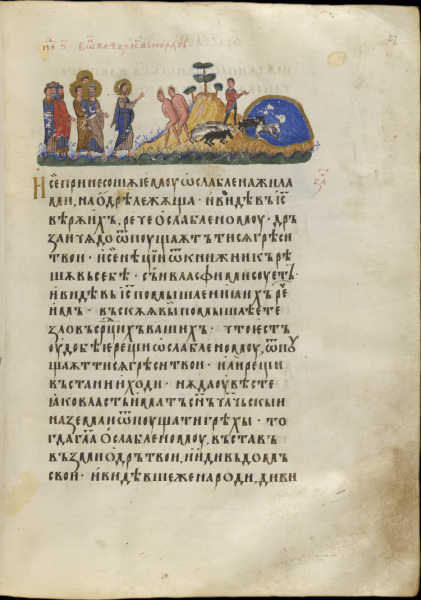 И се принесошѧ емоу ѡслаблена жила
ми, на ѻдрѣ лежѧща · и видѣвъ іс҃
вѣрѫ ихъ, рече ѻслабленомоу · дръ
заи чѧдо ѿпоущаѫтъ ти сѧ грѣси
твои · и се нѣции ѿ книжникъ рѣ
шѧ въ себѣ · съи власфимисоуетъ ·
и видѣвъ іс҃ помышлениа ихъ рече
имъ · въскѫѧ вы помышлѣете
зло въ срⷣцихъ вашихъ · что есть
оудобѣе рещи ѡслабленомоу, ѿпоу
щаѫт ти сѧ грѣси твои · или рещи
въстани и ходи · нѫ да оувѣсте
ꙗко власть имать сн҃ъ чл҃чьскыи
на земли ѿпоущати грѣхы · то
гда гл҃а ѻслабленомоу, въставъ
възми ѻдръ твои, и иди въ домъ
свои · и видѣвше же народи, диви